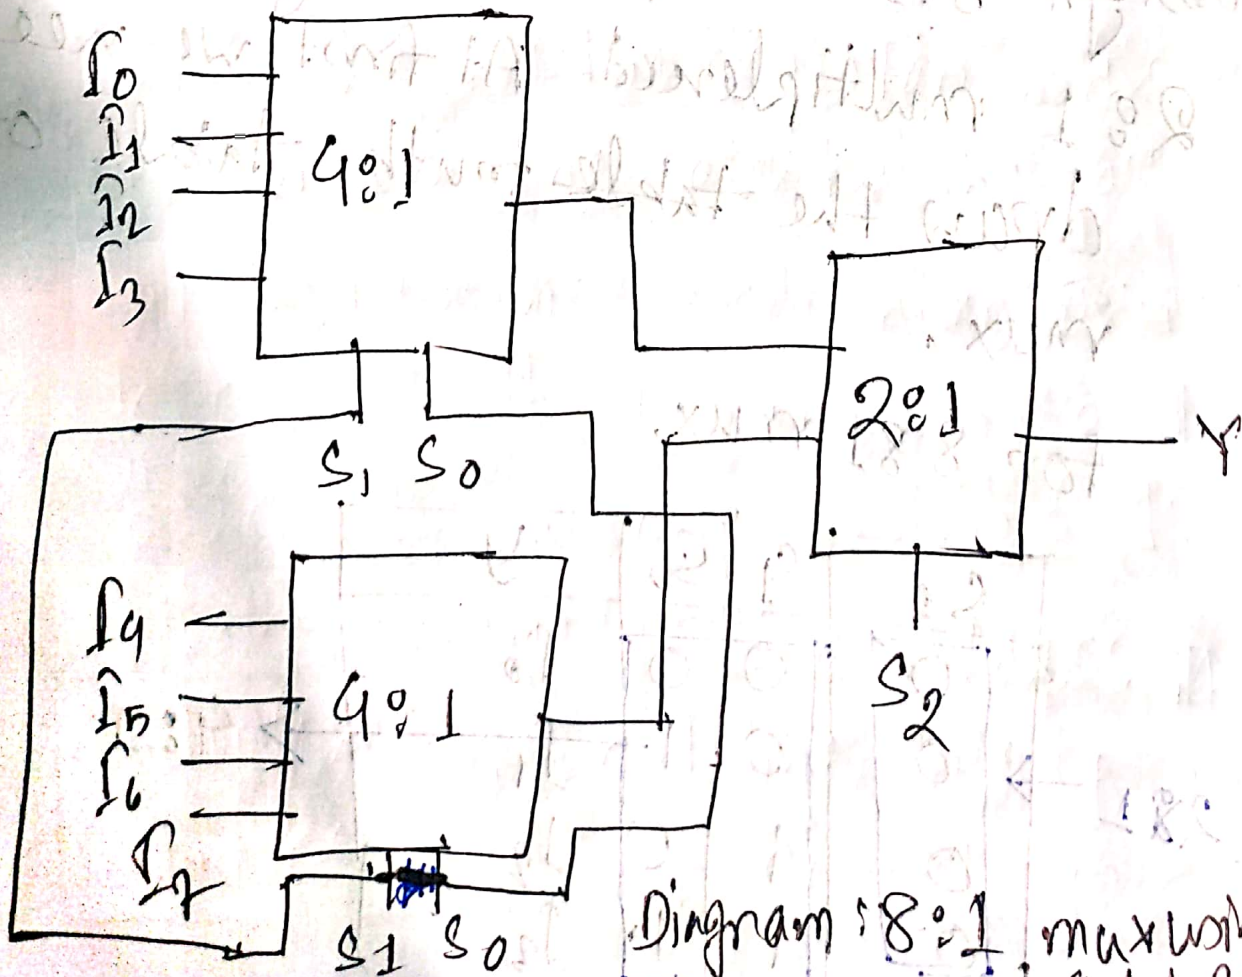 I0
I1
I2
I3
4:1
S1 S0
2:1
Y
S2
I4
I5
I6
I7
4:1
S1 S0
Diagram : 8:1 mux